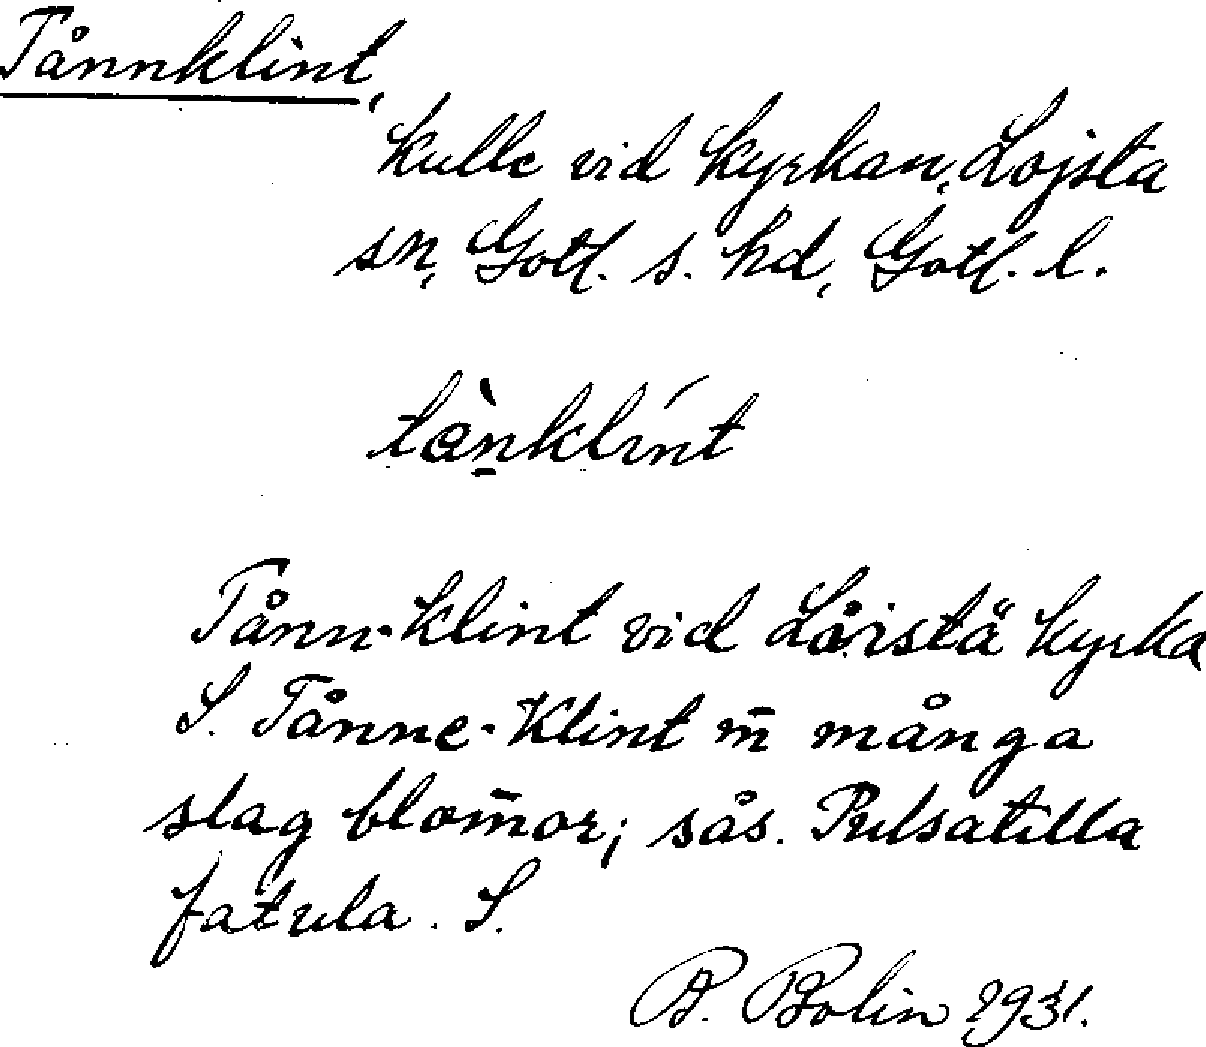 Tånnklint,
kulle vid kyrkan, Lojsta
sn, Gotl. s. hd, Gotl. l.
tànklínt
Tånn-klint vid Låistä kyrka
S. Tånne-Klint m̄ många
slag blom̄or; sås. Pulsatilla
fatula. S.
B. Bolin 1931.